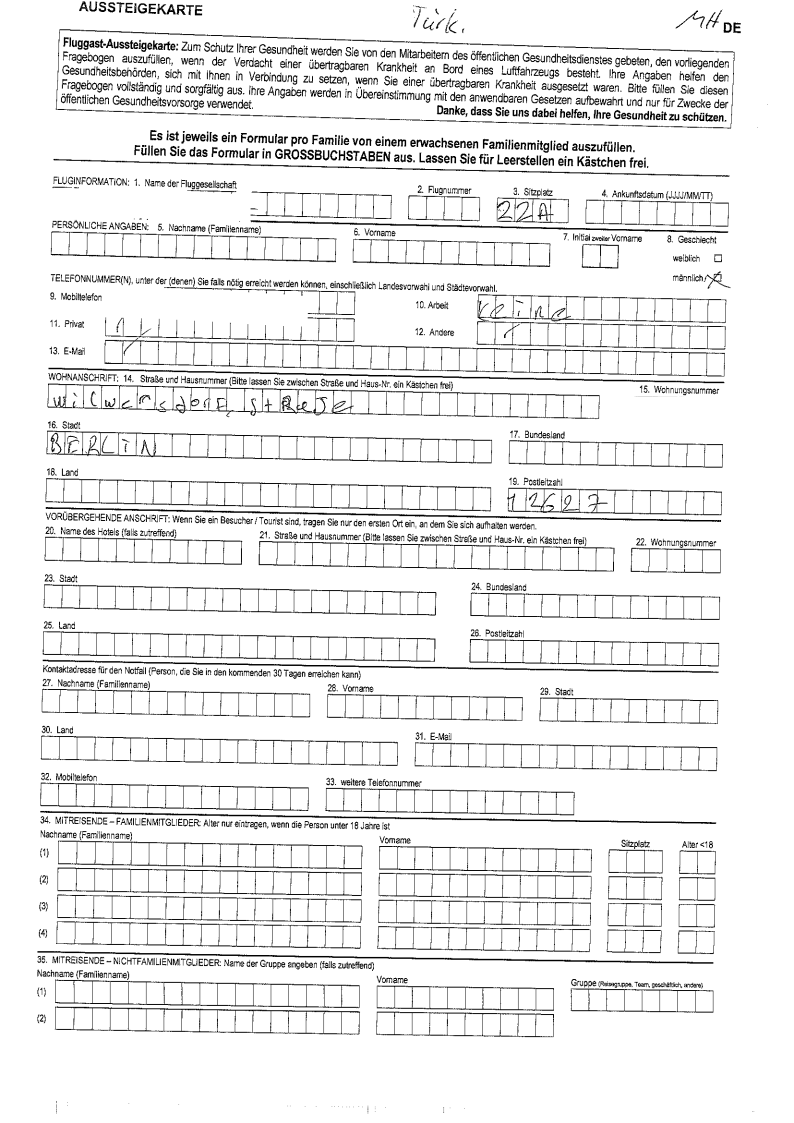 AUSSTEIGEKARTE
Türk.
MH DE
Fluggast-Aussteigekarte: Zum Schutz Ihrer Gesundheit werden Sie von den Mitarbeitern des öffentlichen Gesundheitsdienstes gebeten, den vorliegenden
Fragebogen auszufüllen, wenn der Verdacht einer übertragbaren Krankheit an Bord eines Luftfahrzeugs besteht. Ihre Angaben helfen den
Gesundheitsbehörden, sich mit Ihnen in Verbindung zu setzen, wenn Sie einer übertragbaren Krankheit ausgesetzt waren. Bitte füllen Sie diesen
Fragebogen vollständig und sorgfältig aus. Ihre Angaben werden in Übereinstimmung mit den anwendbaren Gesetzen aufbewahrt und nur für Zwecke der
öffentlichen Gesundheitsvorsorge verwendet. Danke, dass Sie uns dabei helfen, Ihre Gesundheit zu schützen.
Es ist jeweils ein Formular pro Familie von einem erwachsenen Familienmitglied auszufüllen.
Füllen Sie das Formular in GROSSBUCHSTABEN aus. Lassen Sie für Leerstellen ein Kästchen frei.
FLUGINFORMATION: 1. Name der Fluggesellschaft 2. Flugnummer 3. Sitzplatz 4. Ankunftsdatum (JJJJ/MM/TT)
22A
PERSÖNLICHE ANGABEN: 5. Nachname (Familienname) 6. Vorname 7. Initial zweiter Vorname 8. Geschlecht
weiblich
männlich
TELEFONNUMMER(N), unter der (denen) Sie falls nötig erreicht werden können, einschließlich Landesvorwahl und Städtevorwahl.
9. Mobiltelefon 10. Arbeit keine
11. Privat 12. Andere
13. E-Mail
WOHNANSCHRIFT: 14. Straße und Hausnummer (Bitte lassen Sie zwischen Straße und Haus-Nr. ein Kästchen frei) 15. Wohnungsnummer
16. Stadt 17. Bundesland
BERLIN
18. Land 19. Postleitzahl
12627
VORÜBERGEHENDE ANSCHRIFT: Wenn Sie ein Besucher / Tourist sind, tragen Sie nur den ersten Ort ein, an dem Sie sich aufhalten werden.
20. Name des Hotels (falls zutreffend) 21. Straße und Hausnummer (Bitte lassen Sie zwischen Straße und Haus-Nr. ein Kästchen frei) 22. Wohnungsnummer
23. Stadt 24. Bundesland
25. Land 26. Postleitzahl
Kontaktadresse für den Notfall (Person, die Sie in den kommenden 30 Tagen erreichen kann)
27. Nachname (Familienname) 28. Vorname 29. Stadt
30. Land 31. E-Mail
32. Mobiltelefon 33. weitere Telefonnummer
34. MITREISENDE – FAMILIENMITGLIEDER: Alter nur eintragen, wenn die Person unter 18 Jahre ist
Nachname (Familienname) Vorname Sitzplatz Alter <18
(1)
(2)
(3)
(4)
35. MITREISENDE – NICHTFAMILIENMITGLIEDER: Name der Gruppe angeben (falls zutreffend)
Nachname (Familienname) Vorname Gruppe (Reisegruppe, Team, geschäftlich, andere)
(1)
(2)